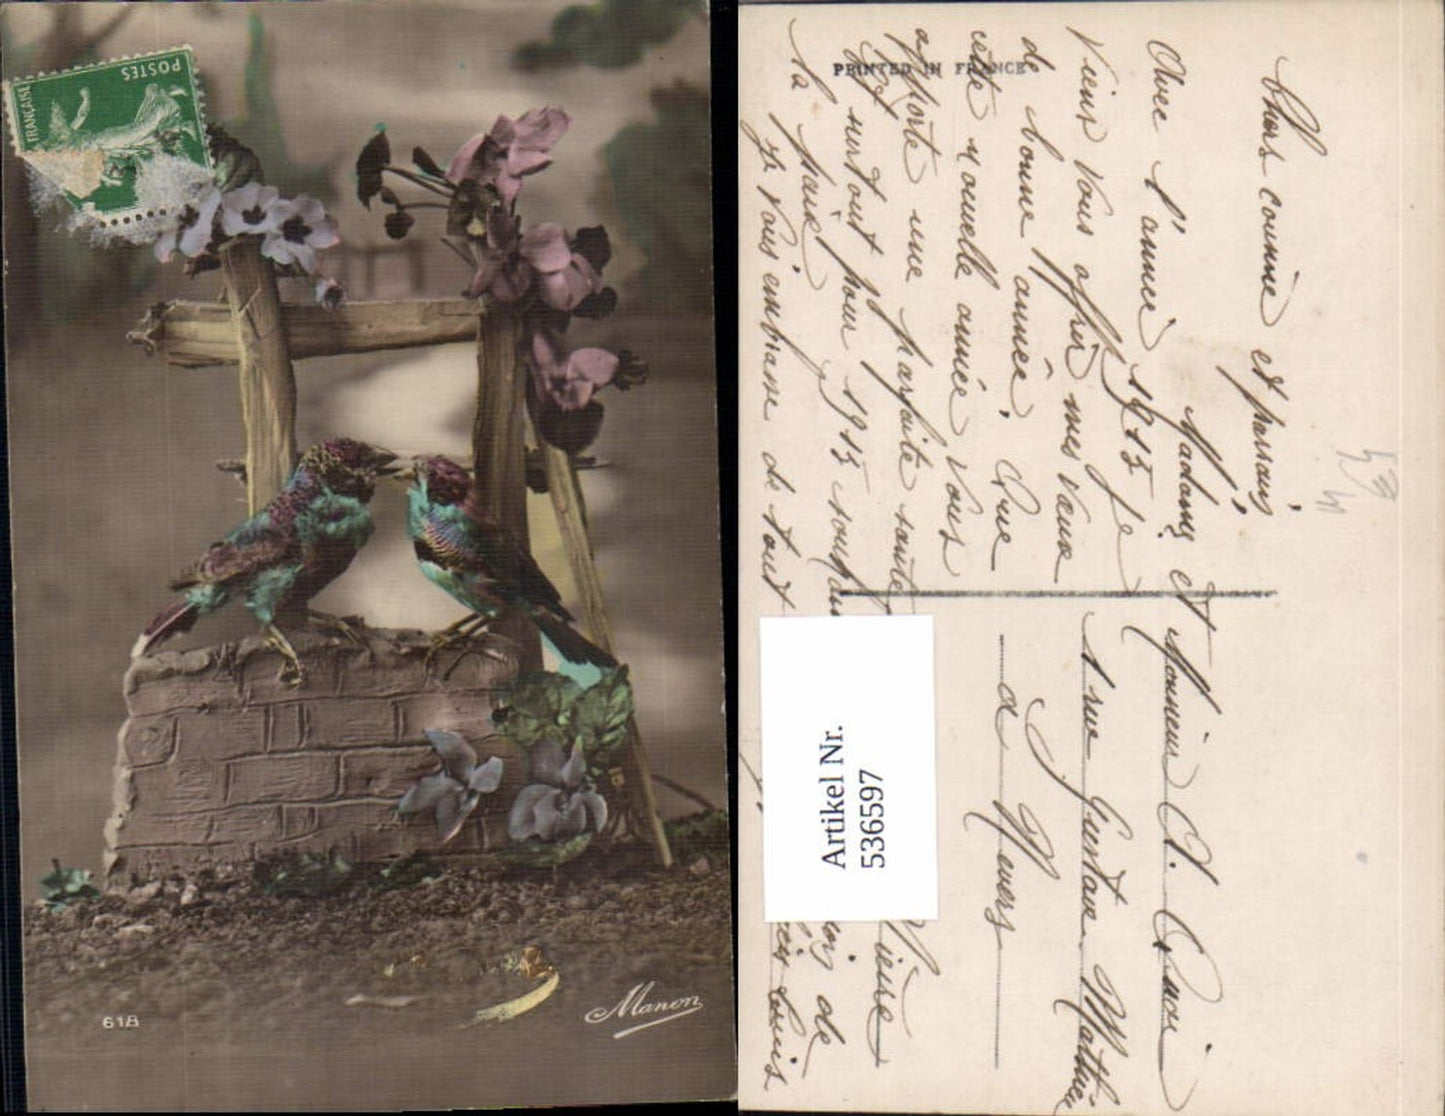 POSTES
FRANÇAISE
618
Manon
PRINTED IN FRANCE
Chers cousine et parrain,
Avec l'année 1915 je
viens vous offrir mes vœux
de bonne année, Que
cette nouvelle année vous
apporte une parfaite santé
et surtout pour 1915
la paix
Je vous embrasse de tout
Madame et Monsieur A.
1 rue Gustave Mathieu
a Nevers
Nièvre
Artikel Nr.
536597